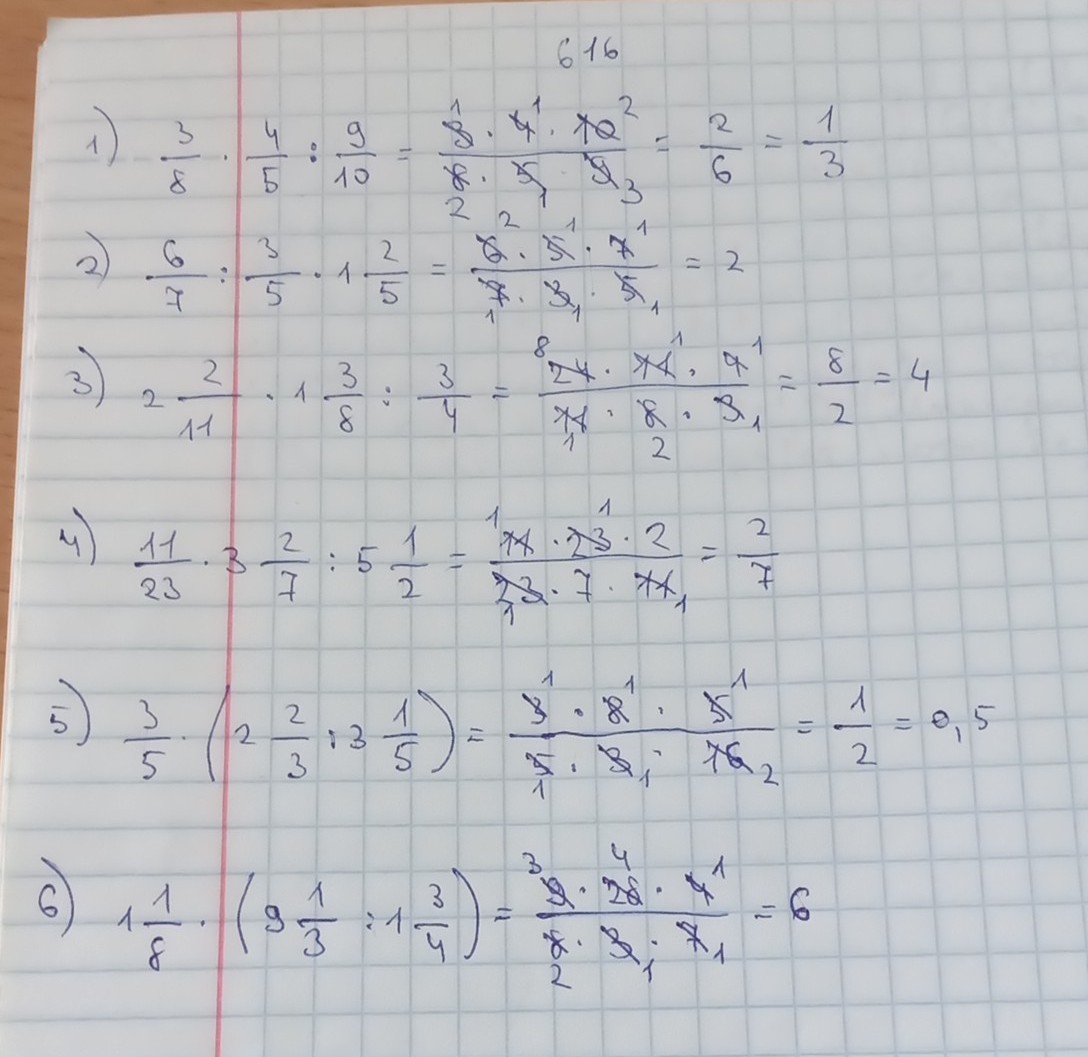 616
1) 3/8 · 4/5 : 9/10 = (3 · 4 · 10)/(8 · 5 · 9) = 2/6 = 1/3
2) 6/7 : 3/5 · 1 2/5 = (6 · 5 · 7)/(7 · 3 · 5) = 2
3) 2 2/11 · 1 3/8 : 3/4 = (24 · 11 · 4)/(11 · 8 · 3) = 8/2 = 4
4) 11/23 · 3 2/7 : 5 1/2 = (11 · 23 · 2)/(23 · 7 · 11) = 2/7
5) 3/5 · (2 2/3 : 3 1/5) = (3 · 8 · 5)/(5 · 3 · 16) = 1/2 = 0,5
6) 1 1/8 · (9 1/3 : 1 3/4) = (9 · 28 · 4)/(8 · 3 · 7) = 6